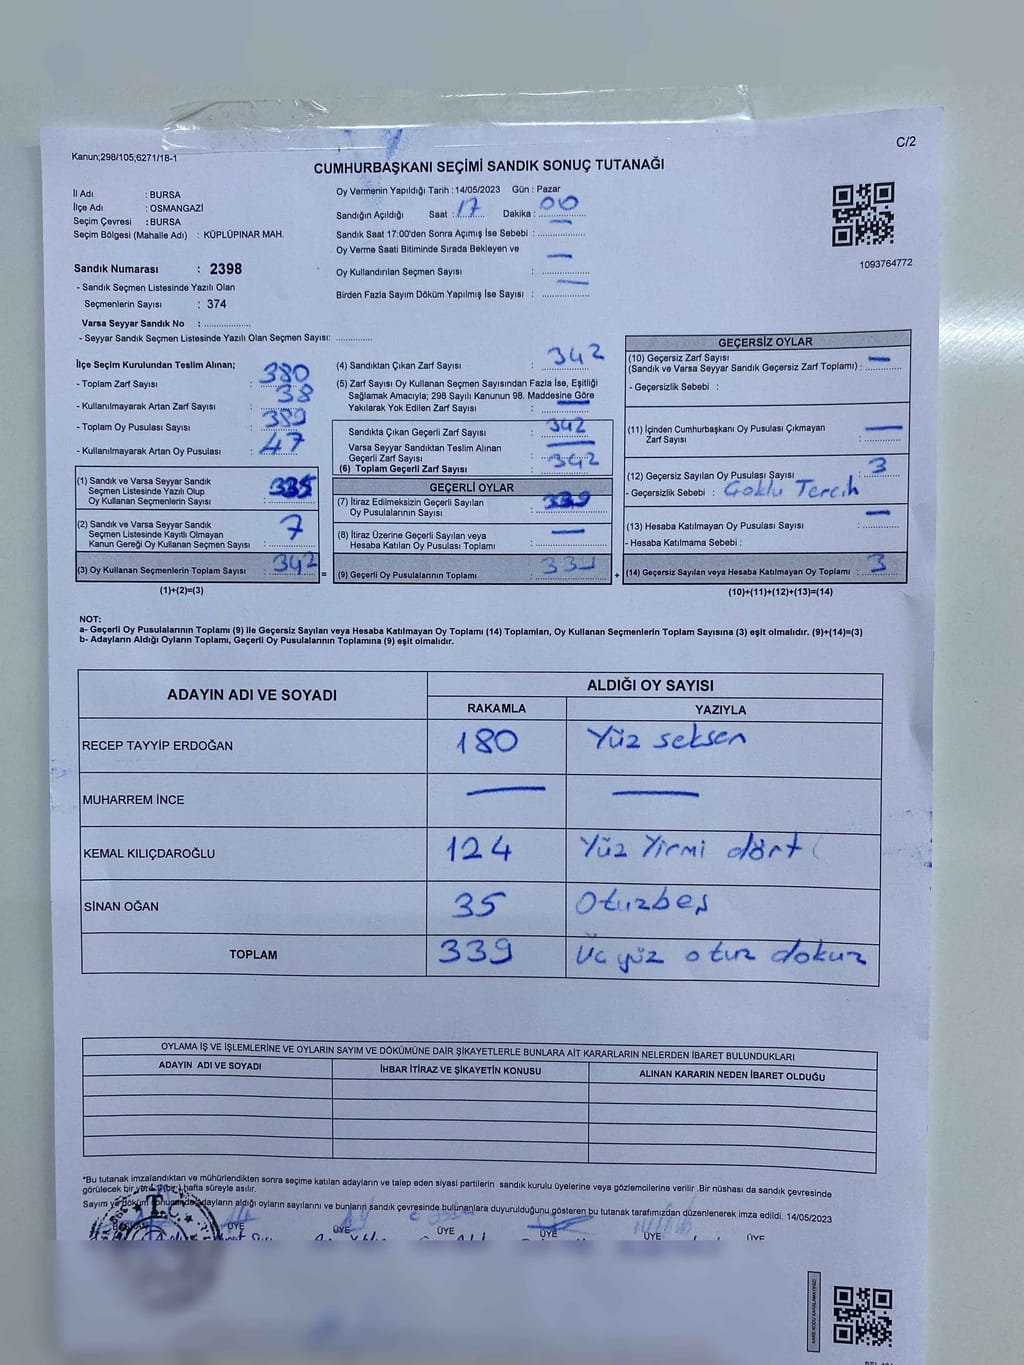 C/2
Kanun;298/105;6271/18-1
CUMHURBAŞKANI SEÇİMİ SANDIK SONUÇ TUTANAĞI
İl Adı : BURSA
İlçe Adı : OSMANGAZİ
Seçim Çevresi : BURSA
Seçim Bölgesi (Mahalle Adı) : KÜPLÜPINAR MAH.
Sandık Numarası : 2398
- Sandık Seçmen Listesinde Yazılı Olan
Seçmenlerin Sayısı : 374
Varsa Seyyar Sandık No : ..................
- Seyyar Sandık Seçmen Listesinde Yazılı Olan Seçmen Sayısı: ..............
Oy Vermenin Yapıldığı Tarih : 14/05/2023 Gün : Pazar
Sandığın Açıldığı Saat : 17 Dakika : 00
Sandık Saat 17:00'den Sonra Açımış İse Sebebi : —
Oy Verme Saati Bitiminde Sırada Bekleyen ve
Oy Kullandırılan Seçmen Sayısı : —
Birden Fazla Sayım Döküm Yapılmış İse Sayısı : —
1093764772
İlçe Seçim Kurulundan Teslim Alınan;
- Toplam Zarf Sayısı : 380
- Kullanılmayarak Artan Zarf Sayısı : 38
- Toplam Oy Pusulası Sayısı : 389
- Kullanılmayarak Artan Oy Pusulası : 47
(1) Sandık ve Varsa Seyyar Sandık
Seçmen Listesinde Yazılı Olup
Oy Kullanan Seçmenlerin Sayısı : 335
(2) Sandık ve Varsa Seyyar Sandık
Seçmen Listesinde Kayıtlı Olmayan
Kanun Gereği Oy Kullanan Seçmen Sayısı : 7
(3) Oy Kullanan Seçmenlerin Toplam Sayısı : 342 =
(1)+(2)=(3)
(4) Sandıktan Çıkan Zarf Sayısı : 342
(5) Zarf Sayısı Oy Kullanan Seçmen Sayısından Fazla İse, Eşitliği
Sağlamak Amacıyla; 298 Sayılı Kanunun 98. Maddesine Göre
Yakılarak Yok Edilen Zarf Sayısı : —
Sandıkta Çıkan Geçerli Zarf Sayısı : 342
Varsa Seyyar Sandıktan Teslim Alınan
Geçerli Zarf Sayısı : —
(6) Toplam Geçerli Zarf Sayısı : 342
GEÇERLİ OYLAR
(7) İtiraz Edilmeksizin Geçerli Sayılan
Oy Pusulalarının Sayısı : 339
(8) İtiraz Üzerine Geçerli Sayılan veya
Hesaba Katılan Oy Pusulası Toplamı : —
(9) Geçerli Oy Pusulalarının Toplamı : 339 +
GEÇERSİZ OYLAR
(10) Geçersiz Zarf Sayısı
(Sandık ve Varsa Seyyar Sandık Geçersiz Zarf Toplamı) : —
- Geçersizlik Sebebi :
(11) İçinden Cumhurbaşkanı Oy Pusulası Çıkmayan
Zarf Sayısı : —
(12) Geçersiz Sayılan Oy Pusulası Sayısı : 3
- Geçersizlik Sebebi : Çoklu Tercih
(13) Hesaba Katılmayan Oy Pusulası Sayısı : —
- Hesaba Katılmama Sebebi :
(14) Geçersiz Sayılan veya Hesaba Katılmayan Oy Toplamı : 3
(10)+(11)+(12)+(13)=(14)
NOT:
a- Geçerli Oy Pusulalarının Toplamı (9) ile Geçersiz Sayılan veya Hesaba Katılmayan Oy Toplamı (14) Toplamları, Oy Kullanan Seçmenlerin Toplam Sayısına (3) eşit olmalıdır. (9)+(14)=(3)
b- Adayların Aldığı Oyların Toplamı, Geçerli Oy Pusulalarının Toplamına (9) eşit olmalıdır.
ADAYIN ADI VE SOYADI ALDIĞI OY SAYISI
RAKAMLA YAZIYLA
RECEP TAYYİP ERDOĞAN 180 Yüz seksen
MUHARREM İNCE — —
KEMAL KILIÇDAROĞLU 124 Yüz Yirmi dört
SİNAN OĞAN 35 Otuzbeş
TOPLAM 339 Üç yüz otuz dokuz
OYLAMA İŞ VE İŞLEMLERİNE VE OYLARIN SAYIM VE DÖKÜMÜNE DAİR ŞİKAYETLERLE BUNLARA AİT KARARLARIN NELERDEN İBARET BULUNDUKLARI
ADAYIN ADI VE SOYADI İHBAR İTİRAZ VE ŞİKAYETİN KONUSU ALINAN KARARIN NEDEN İBARET OLDUĞU
*Bu tutanak imzalandıktan ve mühürlendikten sonra seçime katılan adayların ve talep eden siyasi partilerin sandık kurulu üyelerine veya gözlemcilerine verilir .Bir nüshası da sandık çevresinde
görülecek bir yere 1(bir ) hafta süreyle asılır.
Sayım ve döküm sonucunda adayların aldığı oyların sayılarını ve bunların sandık çevresinde bulunanlara duyurulduğunu gösteren bu tutanak tarafımızdan düzenlenerek imza edildi, 14/05/2023
BAŞKAN ÜYE ÜYE ÜYE ÜYE ÜYE ÜYE
T.C.